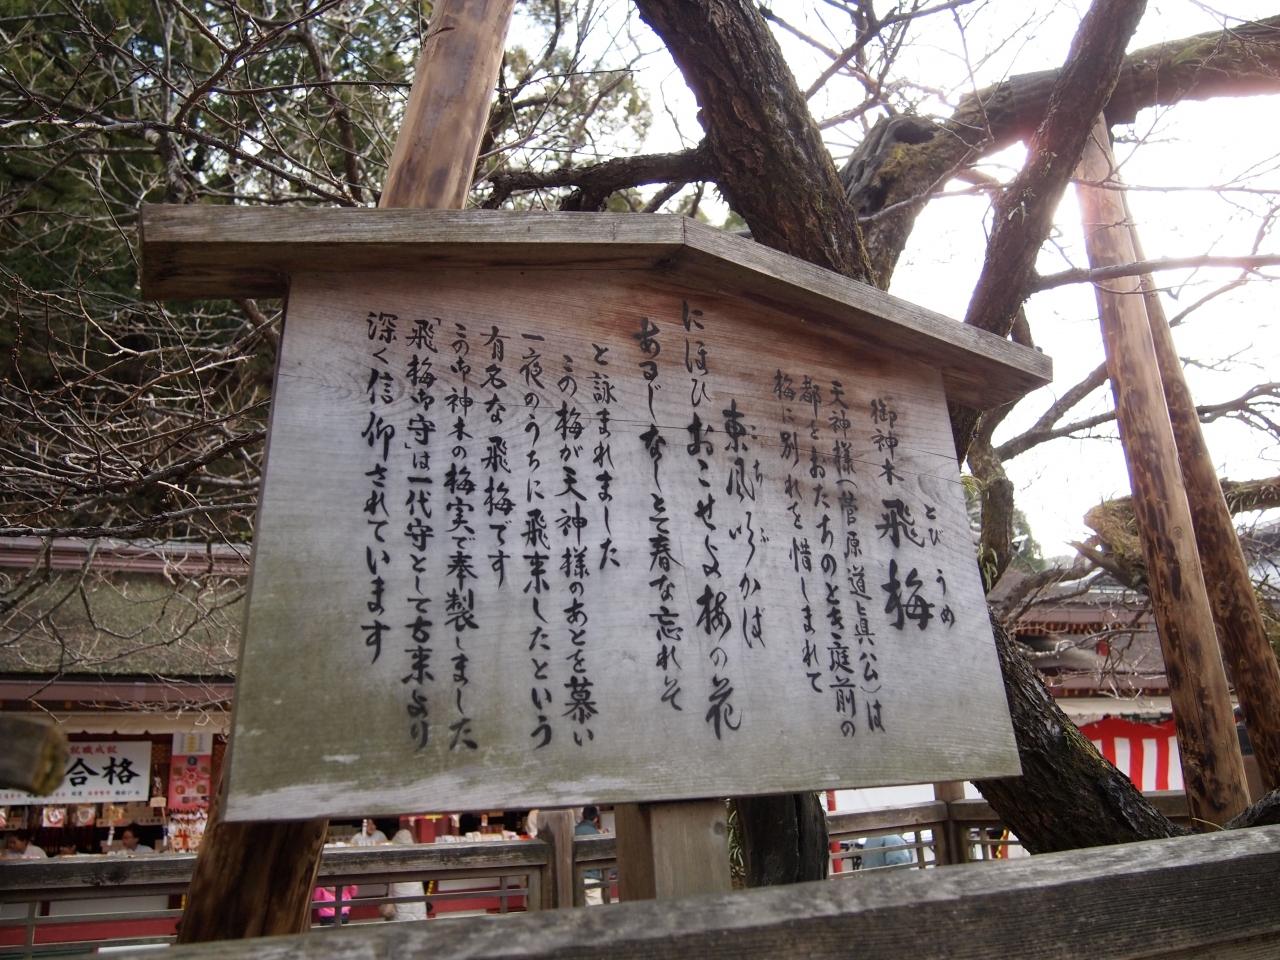 御神木 飛梅
とび うめ
天神様(菅原道眞公)は
都をおたちのとき庭前の
梅に別れを惜しまれて
東風吹かば
こち ふ
にほひおこせよ梅の花
あるじなしとて春な忘れそ
と詠まれました
この梅が天神様のあとを慕い
一夜のうちに飛来したという
有名な飛梅です
この御神木の梅実で奉製しました
「飛梅御守」は一代守として古来より
深く信仰されています
就職成就
合格